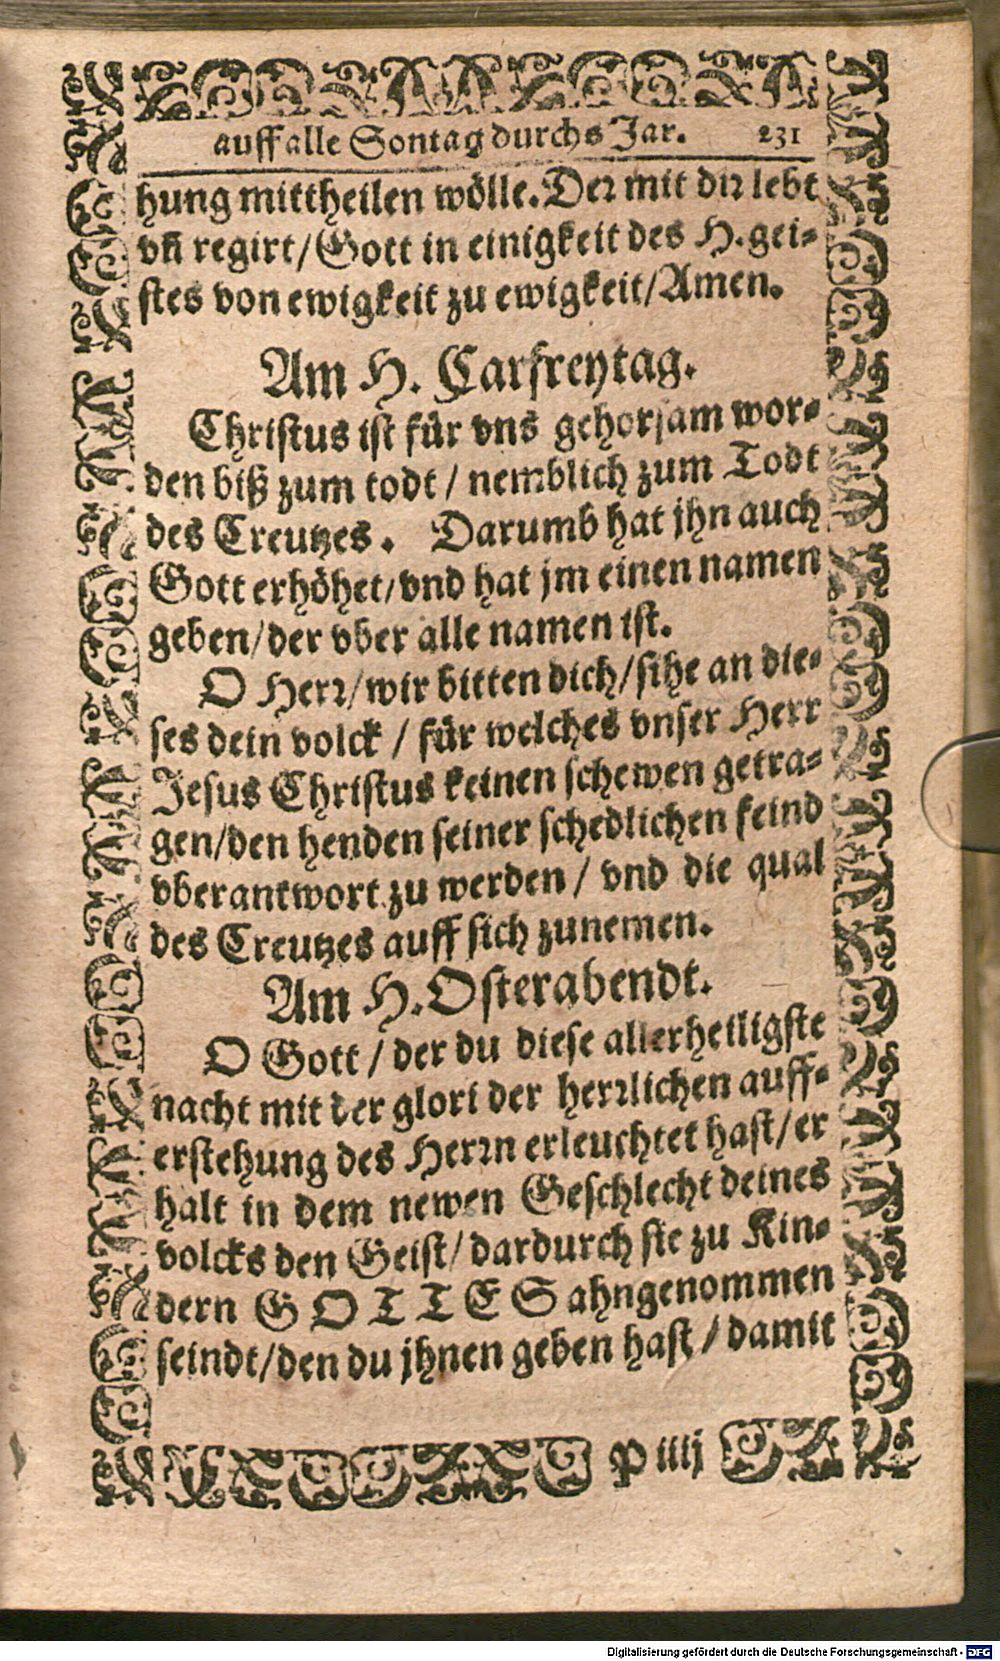 auff alle Sontag durchs Jar. 231
hung mittheilen wölle. Der mit dir lebt
vñ regirt/ Gott in einigkeit des H. gei-
stes von ewigkeit zu ewigkeit/ Amen.
Am H. Carfreytag.
Christus ist für vns gehorsam wor-
den biß zum todt / nemblich zum Todt
des Creutzes. Darumb hat jhn auch
Gott erhöhet/ vnd hat jm einen namen
geben/ der vber alle namen ist.
O Herr/ wir bitten dich/ sihe an die-
ses dein volck / für welches vnser Herr
Jesus Christus keinen schewen getra-
gen/ den henden seiner schedlichen feind
vberantwort zu werden / vnd die qual
des Creutzes auff sich zunemen.
Am H. Osterabendt.
O Gott / der du diese allerheiligste
nacht mit der glori der herrlichen auff-
erstehung des Herrn erleuchtet hast/ er
halt in dem newen Geschlecht deines
volcks den Geist/ dardurch sie zu Kin-
dern GOTTES ahngenommen
seindt/ den du jhnen geben hast / damit
P iiij
Digitalisierung gefördert durch die Deutsche Forschungsgemeinschaft - DFG